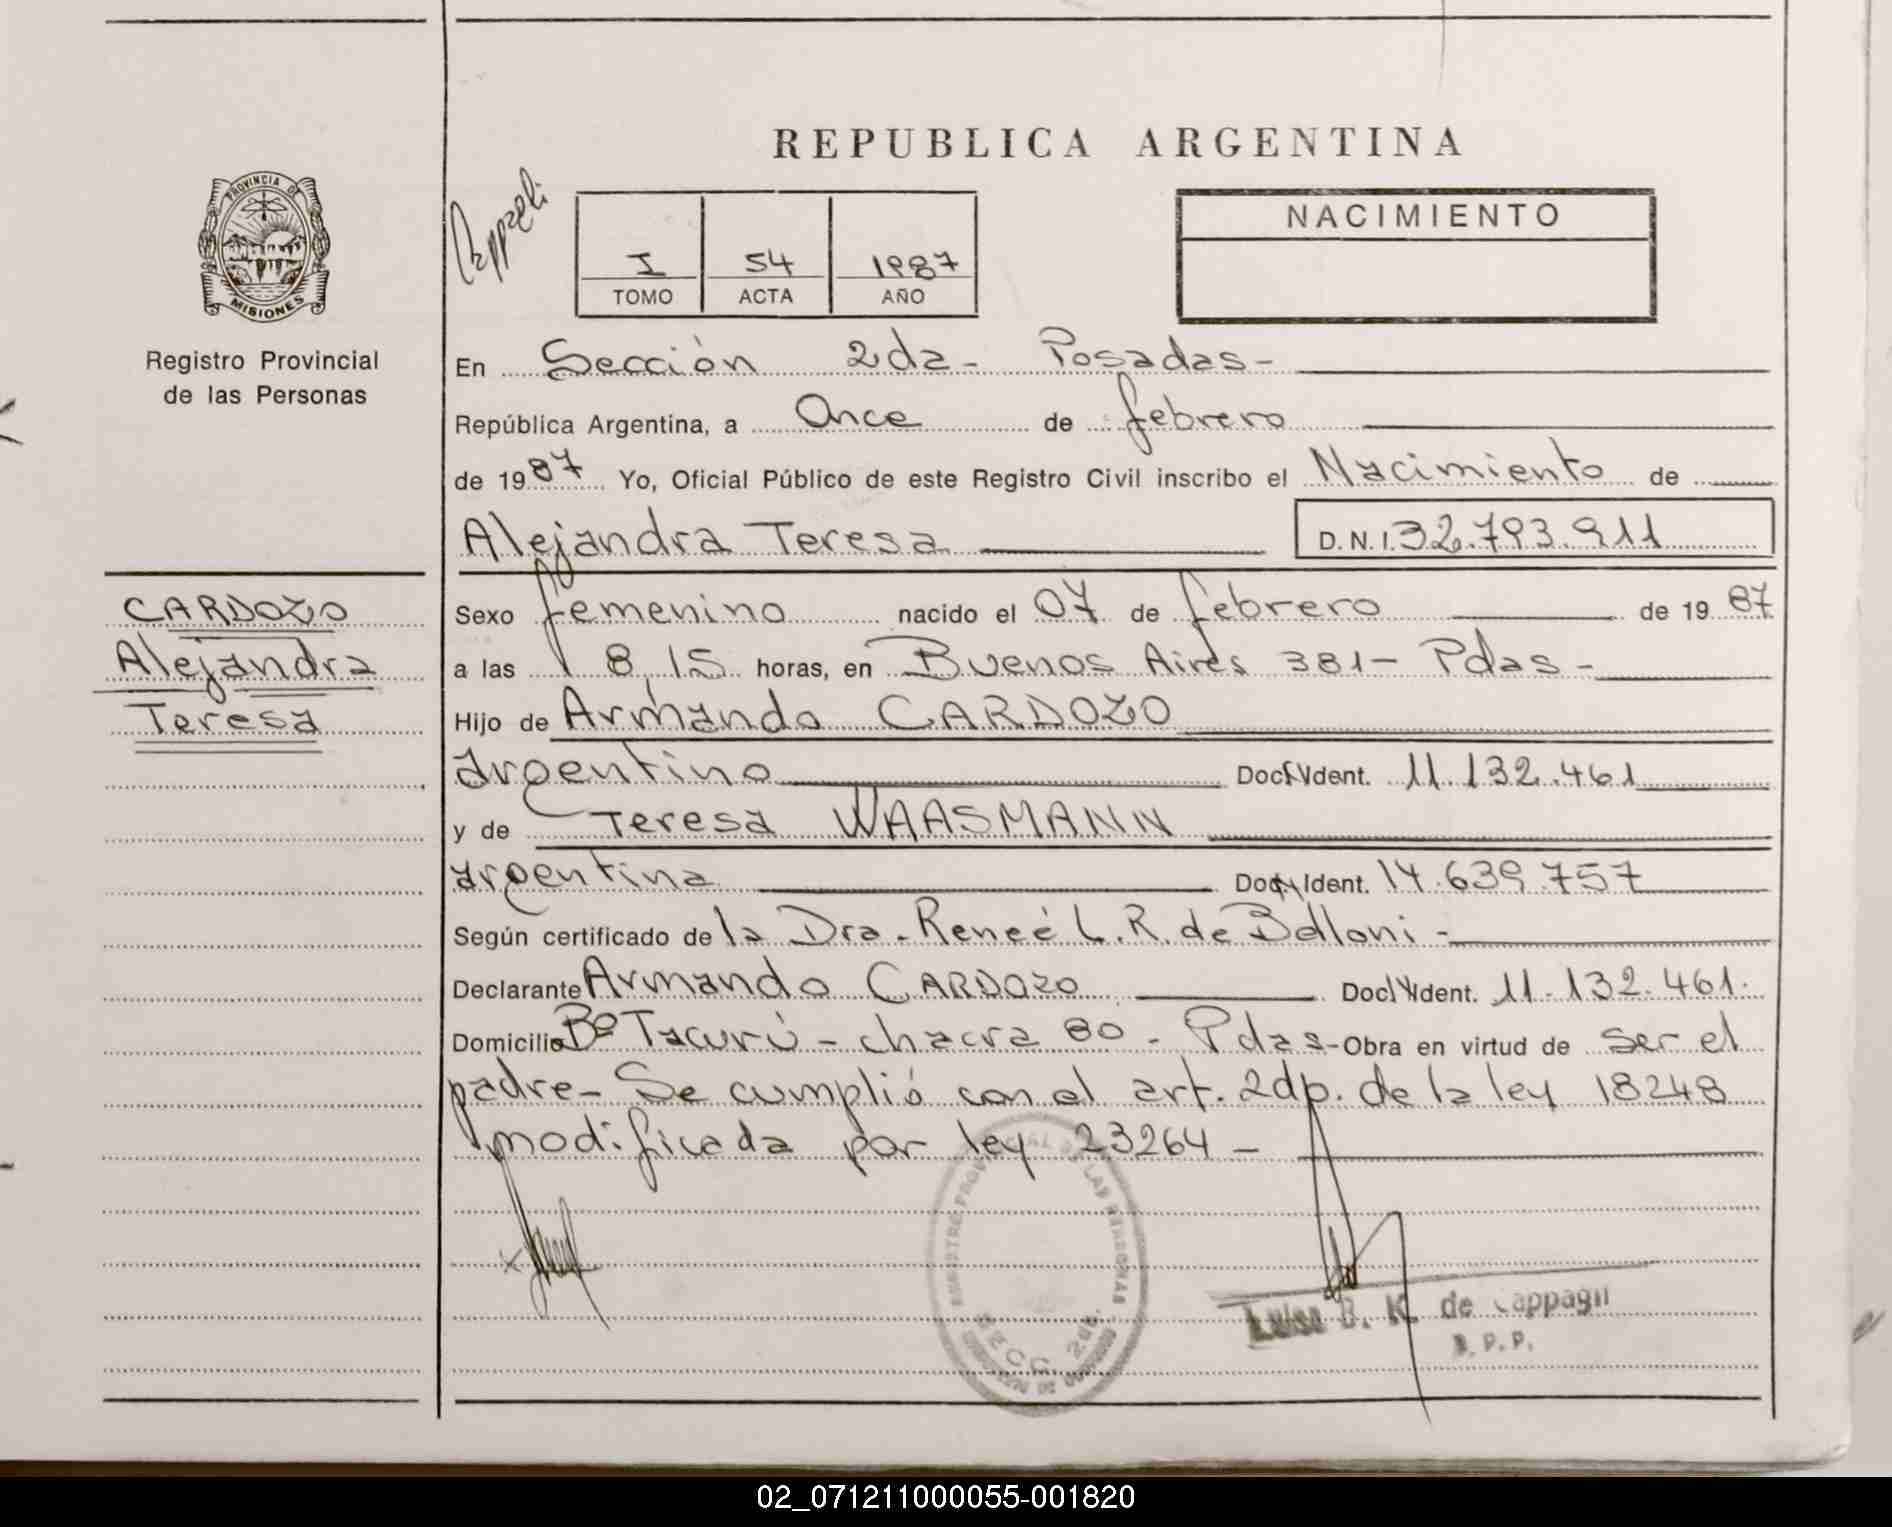 REPUBLICA ARGENTINA
PROVINCIA DE
MISIONES
Registro Provincial
de las Personas
I 54 1987
TOMO ACTA AÑO
NACIMIENTO
En Sección 2da - Posadas -
República Argentina, a Once de febrero
de 1987 Yo, Oficial Público de este Registro Civil inscribo el Nacimiento de
Alejandra Teresa D.N.I. 32.793.911
CARDOZO
Alejandra
Teresa
Sexo femenino nacido el 07 de febrero de 1987
a las 8,15 horas, en Buenos Aires 381 - Pdas -
Hijo de Armando CARDOZO
argentino Doc. Ident. 11.132.461
y de Teresa WAASMANN
argentina Doc. Ident. 14.639.757
Según certificado de la Dra. Reneé L. R. de Belloni -
Declarante Armando CARDOZO Doc. Ident. 11.132.461.
Domicilio Bº Tacurú - chacra 80 - Pdas - Obra en virtud de ser el
padre - Se cumplió con el art. 2dp. de la ley 18248
modificada por ley 23264 -
PROVINCIAL DE LAS PERSONAS
SECC. 2da.
Luisa B. K. de Cappagli
02_071211000055-001820